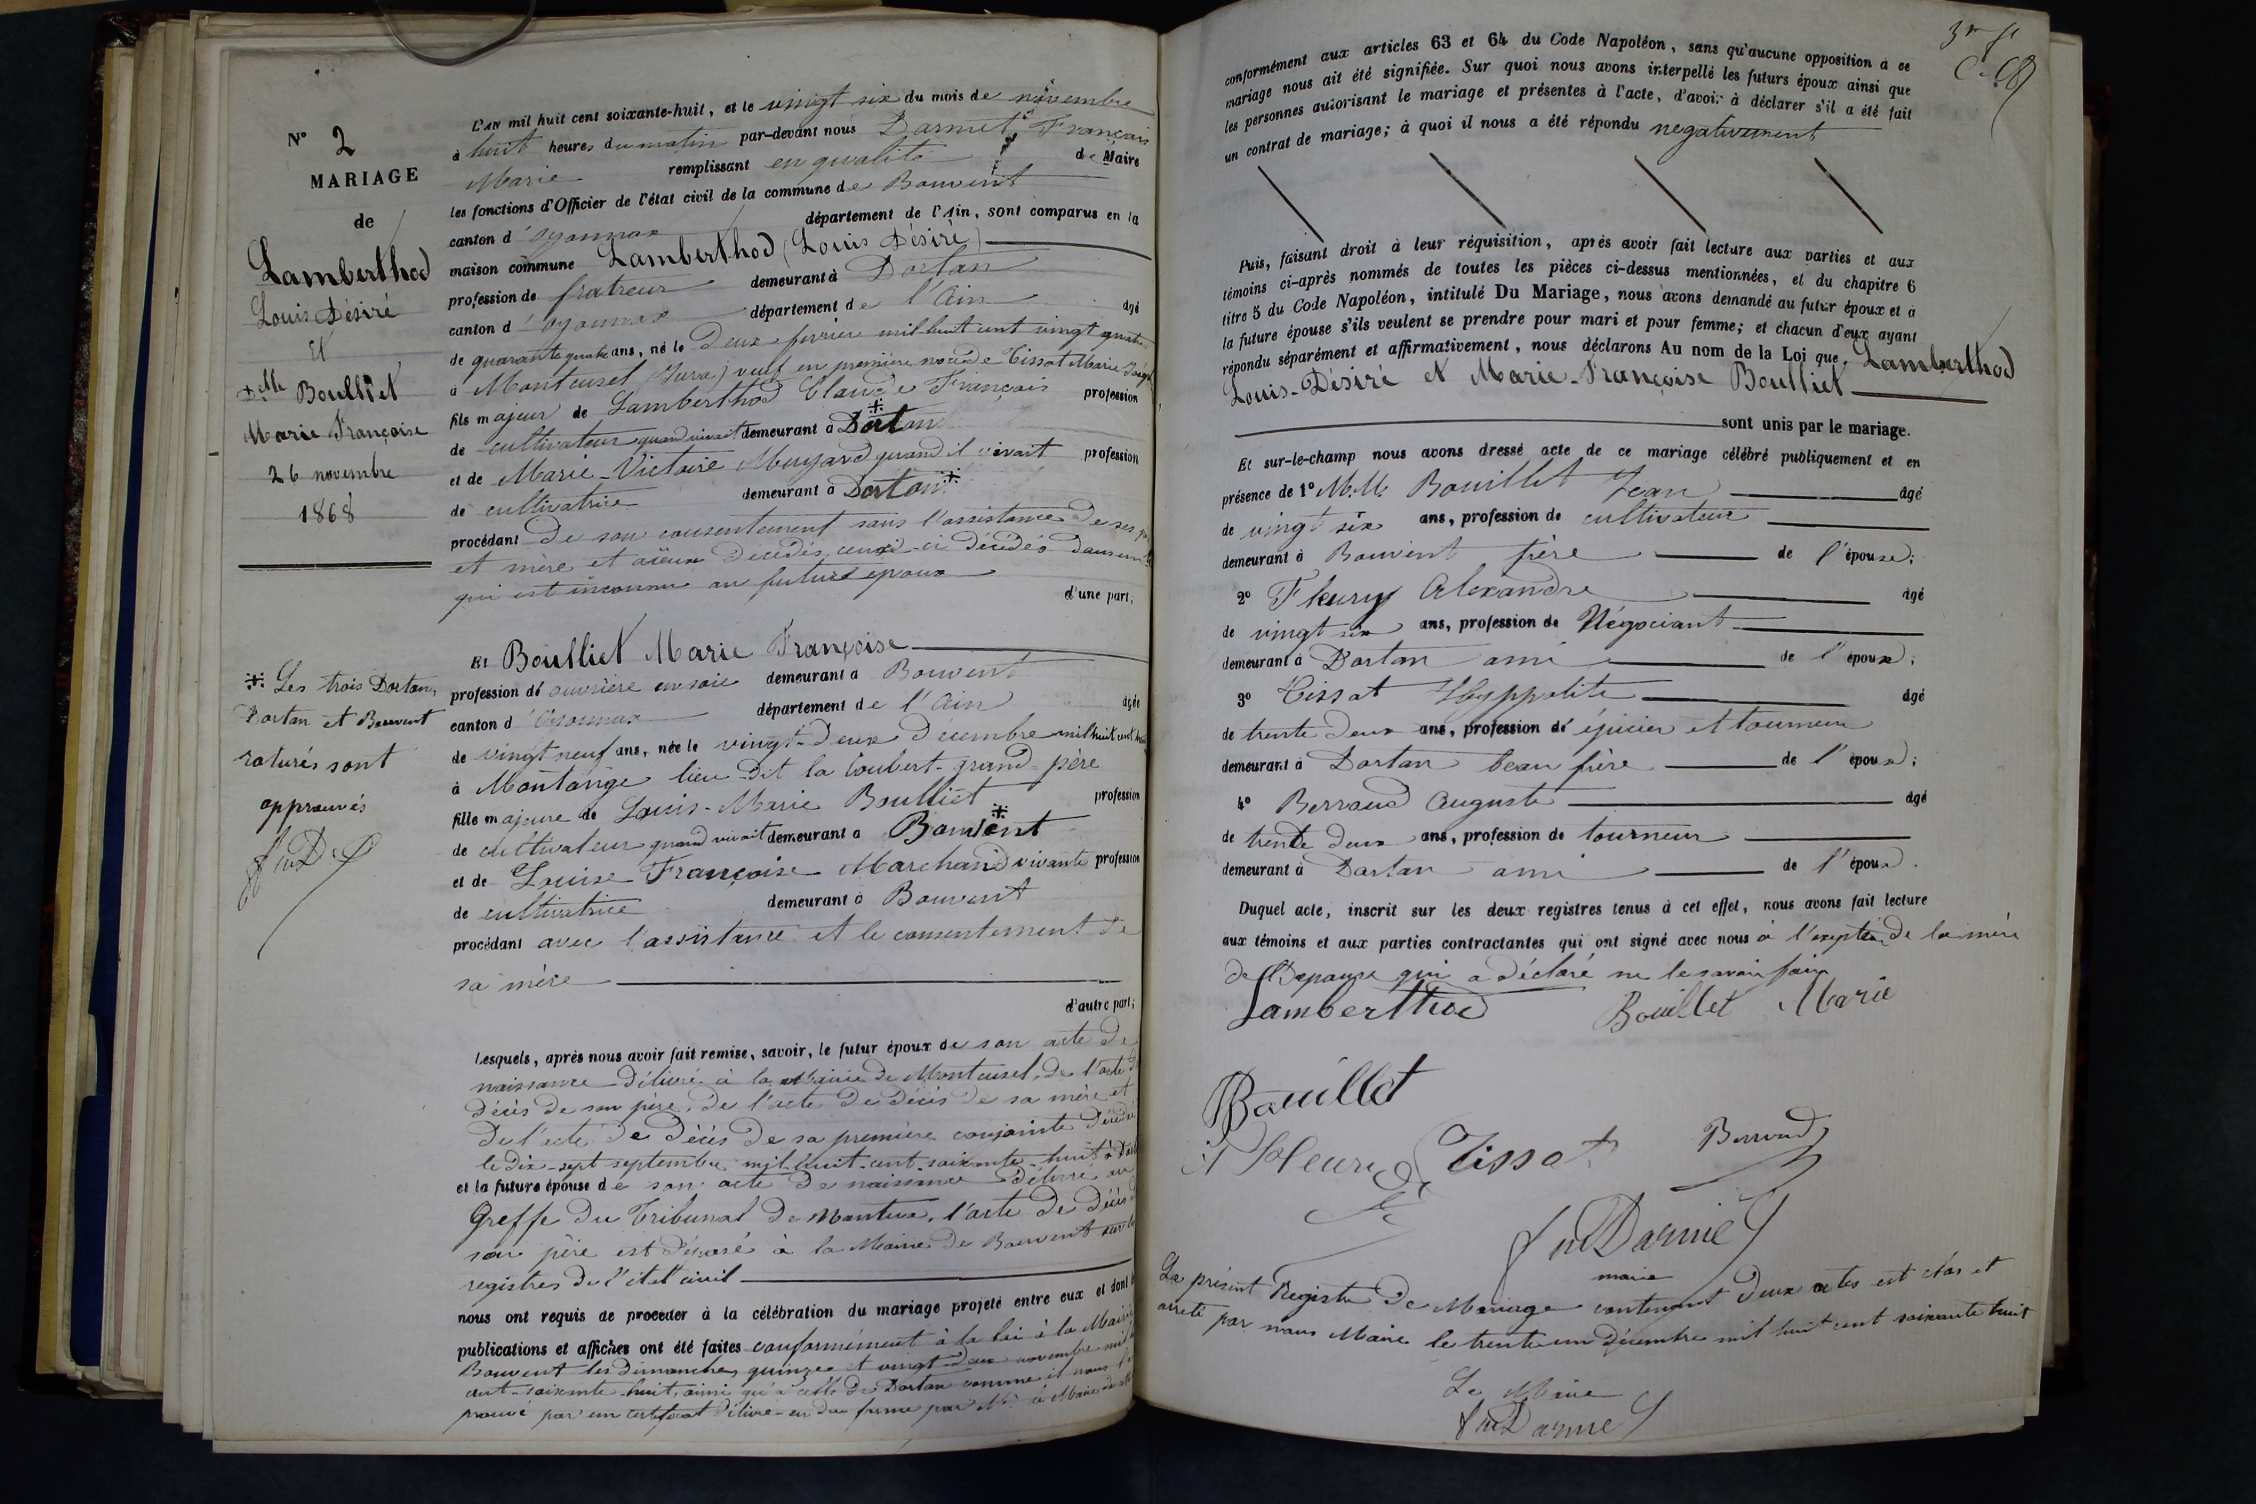 N° 2
MARIAGE
de
Lamberthod
Louis Désiré
et
Dlle Boulliet
Marie Françoise
26 novembre
1868
⁜ Les trois Dortan,
Dortan et Bouvent
raturés sont
approuvés
L'AN mil huit cent soixante-huit, et le vingt six du mois de novembre
à huit heures du matin par-devant nous Darmet François
Marie remplissant en qualité de Maire
les fonctions d'Officier de l'état civil de la commune de Bouvent
canton d'Oyonnax département de l'Ain, sont comparus en la
maison commune Lamberthod (Louis Désiré)
profession de demeurant à Dortan
canton d'Oyonnax département de l'Ain âgé
de quarante quatre ans, né le deux fevrier mil huit cent vingt quatre
à Montcusel (Jura) veuf en première noce de Tissot Marie
fils majeur de Lamberthod Claude François profession
de cultivateur quand vivait demeurant à Dortan ⁜
et de Marie-Victoire Muyard quand il vivait profession
de cultivatrice demeurant à Dortan ⁜
procédant de son consentement sans l'assistance de ses
et mère et aïeux décédés, ceux-ci décédés dans un
qui est inconnu au futur époux
d'une part;
Et Boulliet Marie Françoise
profession de ouvrière en soie demeurant à Bouvent
canton d'Oyonnax département de l'Ain âgée
de vingt neuf ans, née le vingt-deux décembre mil huit cent
à Montange lieu-dit la Coubert-grand-père
fille majeure de Louis-Marie Boulliet profession
de cultivateur quand vivait demeurant à Bouvent ⁜
et de Louise Françoise Marchand vivante profession
de cultivatrice demeurant à Bouvent
procédant avec l'assistance et le consentement de
sa mère
d'autre part;
Lesquels, après nous avoir fait remise, savoir, le futur époux de son acte de
naissance délivré à la Mairie de Montcusel, de l'acte de
décès de son père, de l'acte de décès de sa mère et
de l'acte de décès de sa première conjointe décédée
le dix-sept septembre mil-huit-cent-soixante-huit à
et la future épouse de son acte de naissance délivré au
Greffe du Tribunal de Nantua, l'acte de décès de
son père est déposé à la Mairie de Bouvent sur les
registres de l'état civil
nous ont requis de procéder à la célébration du mariage projeté entre eux et dont les
publications et affiches ont été faites conformément à la loi à la Mairie
Bouvent les dimanches quinze et vingt-deux novembre mil
cent-soixante-huit, ainsi qu'à celle de Dortan comme il nous l'a
prouvé par un certificat délivré en due forme par Mr le Maire de
conformément aux articles 63 et 64 du Code Napoléon, sans qu'aucune opposition à ce
mariage nous ait été signifiée. Sur quoi nous avons interpellé les futurs époux ainsi que
les personnes autorisant le mariage et présentes à l'acte, d'avoir à déclarer s'il a été fait
un contrat de mariage; à quoi il nous a été répondu négativement
Puis, faisant droit à leur réquisition, après avoir fait lecture aux parties et aux
témoins ci-après nommés de toutes les pièces ci-dessus mentionnées, et du chapitre 6
titre 5 du Code Napoléon, intitulé Du Mariage, nous avons demandé au futur époux et à
la future épouse s'ils veulent se prendre pour mari et pour femme; et chacun d'eux ayant
répondu séparément et affirmativement, nous déclarons Au nom de la Loi que Lamberthod
Louis-Désiré et Marie-Françoise Boulliet
sont unis par le mariage.
Et sur-le-champ nous avons dressé acte de ce mariage célébré publiquement et en
présence de 1° M.M. Bouillet Jean âgé
de vingt six ans, profession de cultivateur
demeurant à Bouvent frère de l'épouse;
2° Fleury Alexandre âgé
de vingt six ans, profession de Négociant
demeurant à Dortan ami de l'époux;
3° Tissot Hyppolite âgé
de trente deux ans, profession de épicier et tourneur
demeurant à Dortan beau frère de l'époux;
4° Berroud Auguste âgé
de trente deux ans, profession de tourneur
demeurant à Dortan ami de l'époux.
Duquel acte, inscrit sur les deux registres tenus à cet effet, nous avons fait lecture
aux témoins et aux parties contractantes qui ont signé avec nous à l'exeption de la mère
de l'Epouse qui a déclaré ne le savoir faire
Lamberthod Bouillet Marie
Bouillet
Fleury Tissot Berroud
Darmet
maire
Le présent Registre de Mariage contenant deux actes est clos et
arreté par nous Maire le trente un décembre mil huit cent soixante huit
Le Maire
Darmet